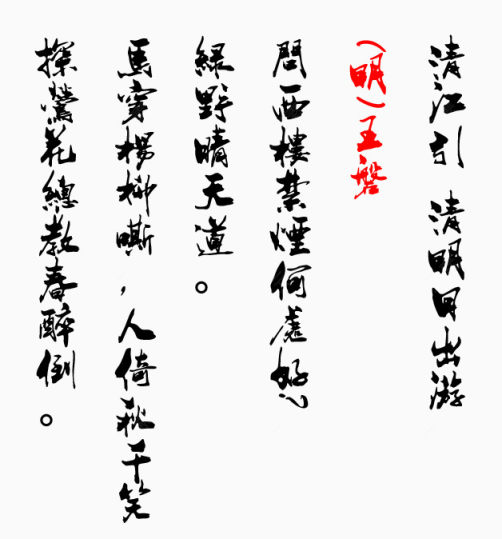 清江引 清明日出游
(明)王磐
問西樓禁煙何處好?
綠野晴天道。
馬穿楊柳嘶,人倚秋千笑
探鶯花總教春醉倒。